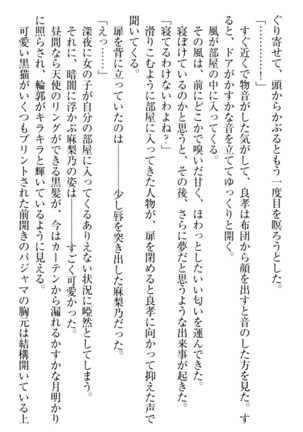 ぐり寄せて、頭からかぶるともう一度目を瞑ろうとした。
「…………！」
すぐ近くで物音がした気がして、良孝は布団から顔を出すと音のした方を見た。す
ると、ドアがかすかな音を立ててゆっくりと開く。
風が部屋の中に入ってくる。
その風は、前にどこかで嗅いだ甘く、ほわっとしたいい匂いを運んできた。
寝ぼけているのかと思うと、その後、さらに夢だと思うような出来事が起きた。
「寝てるわけないわよね？」
滑りこむように部屋に入ってきた人物が、扉を閉めると良孝に向かって抑えた声で
聞いてくる。
扉を背に立っていたのは――少し唇を突き出した麻梨乃だった。
「えっ……」
深夜に女の子が自分の部屋に入ってくるありえない状況に啞然としてしまう。
それに、暗闇に浮かぶ麻梨乃の姿は――すごく可愛かった。
昼間なら天使のリングができる黒髪が、今はカーテンから漏れるかすかな月明かり
に照らされ、輪郭がキラキラと輝いているように見える。
可愛い黒猫がいくつもプリントされた前開きのパジャマの胸元は結構開いている上